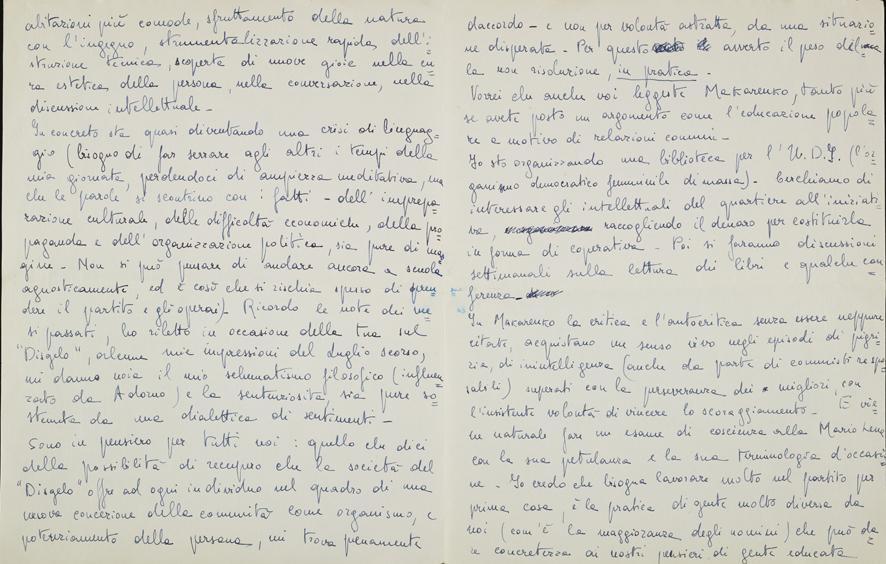 abitazioni più comode, sfruttamento della natura
con l'ingegno, strumentalizzazione rapida dell'i=
struzione tecnica, scoperta di nuove gioie nella cu=
ra estetica della persona, nella conversazione, nella
discussione intellettuale -
In concreto sta quasi diventando una crisi di linguag=
gio (bisogno di far serrare agli altri i tempi della
mia giornata, perdendoci di ampiezza meditativa, ma
che le parole si scontrino con i fatti - dell'imprepa=
razione culturale, delle difficoltà economiche, della pro=
paganda e dell'organizzazione politica, sia pure di
gine - Non si può pensare di andare ancora a scuola
agnosticamente, ed è così che si rischia spesso di
dere il partito e gli operai). Ricordo le note dei me=
si passati, ho riletto in occasione della tua sul
"Disgelo", alcune mie impressioni del Luglio scorso,
mi danno noia il mio schematismo filosofico (influen=
zato da Adorno) e la sentenziosità, sia pure so=
stenuta da una dialettica di sentimenti -
Sono in pensiero per tutti noi: quello che dici
della possibilità di recupero che la società del
"Disgelo" offre ad ogni individuo nel quadro di una
nuova concezione della comunità come organismo, e
potenziamento della persona, mi trova pienamente
daccordo - e non per volontà astratta, da una situazio
ne disperata - Per questo avverto il peso della
la non risoluzione, in pratica -
Vorrei che anche voi leggeste Makarenko, tanto più
se avete posto un argomento come l'educazione popola=
re a motivo di relazioni comuni -
Io sto organizzando una biblioteca per l'U.D.I. (l'or
ganismo democratico femminile di massa) - Cerchiamo di
interessare gli intellettuali del quartiere all'iniziati=
va, raccogliendo il denaro per costituirla
in forma di coperativa - Poi si faranno discussioni
settimanali sulla lettura dei libri e qualche con
ferenza -
In Makarenko la critica e l'autocritica senza essere neppure
citate, acquistano un senso vivo negli episodi di pigri
zia, di inintelligenza (anche da parte di comunisti respon
sabili) superati con la perseveranza dei migliori, con
l'insistente volontà di vincere lo scoraggiamento - E vie=
ne naturale fare un esame di coscienza alla Mario Lena
con la sua petulanza e la sua terminologia d'occasio
ne - Io credo che bisogna lavorare molto nel partito per
prima cosa, è la pratica di gente molto diversa da
noi (com'è la maggioranza degli uomini) che può da=
re concretezza ai nostri pensieri di gente educata